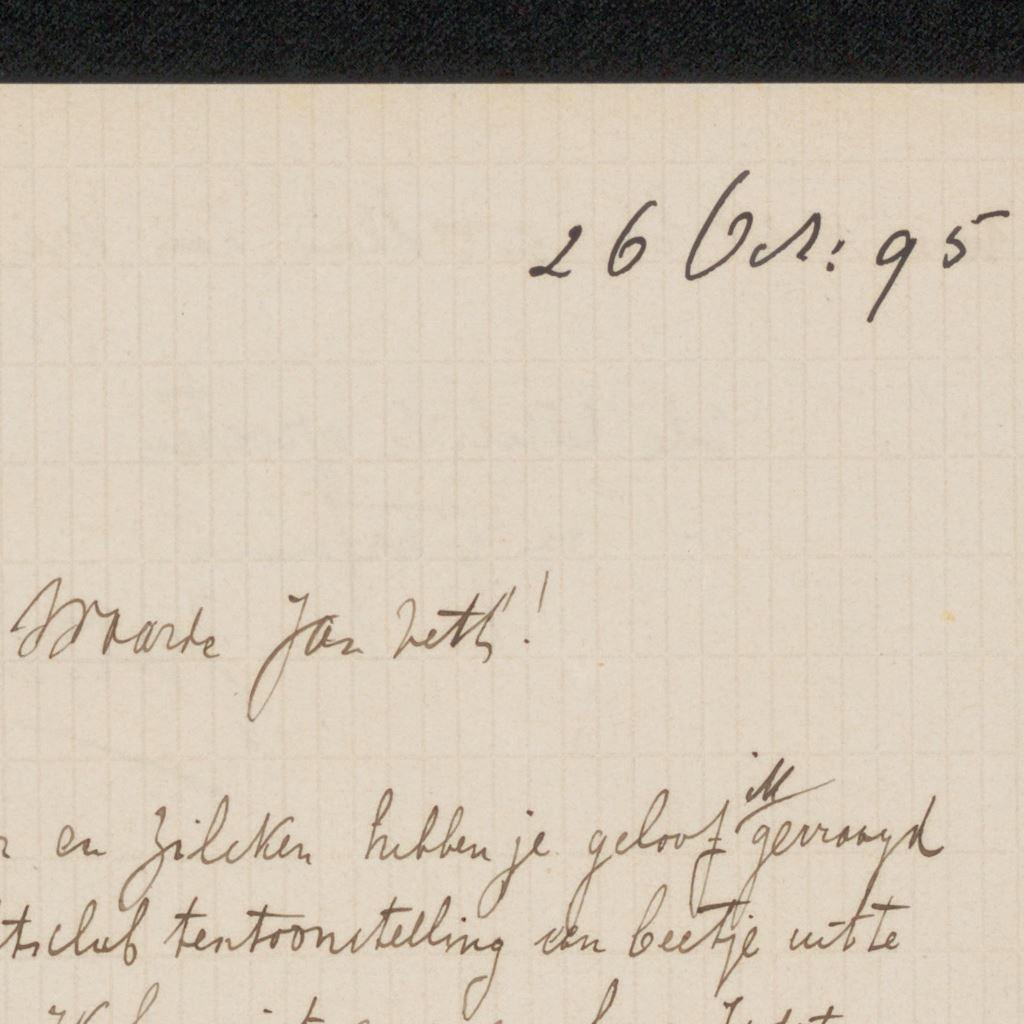 26 Oct: 95
Waarde Jan Veth!
en Zilcken hebben je geloof ik gevraagd
tsclub tentoonstelling een beetje uit te